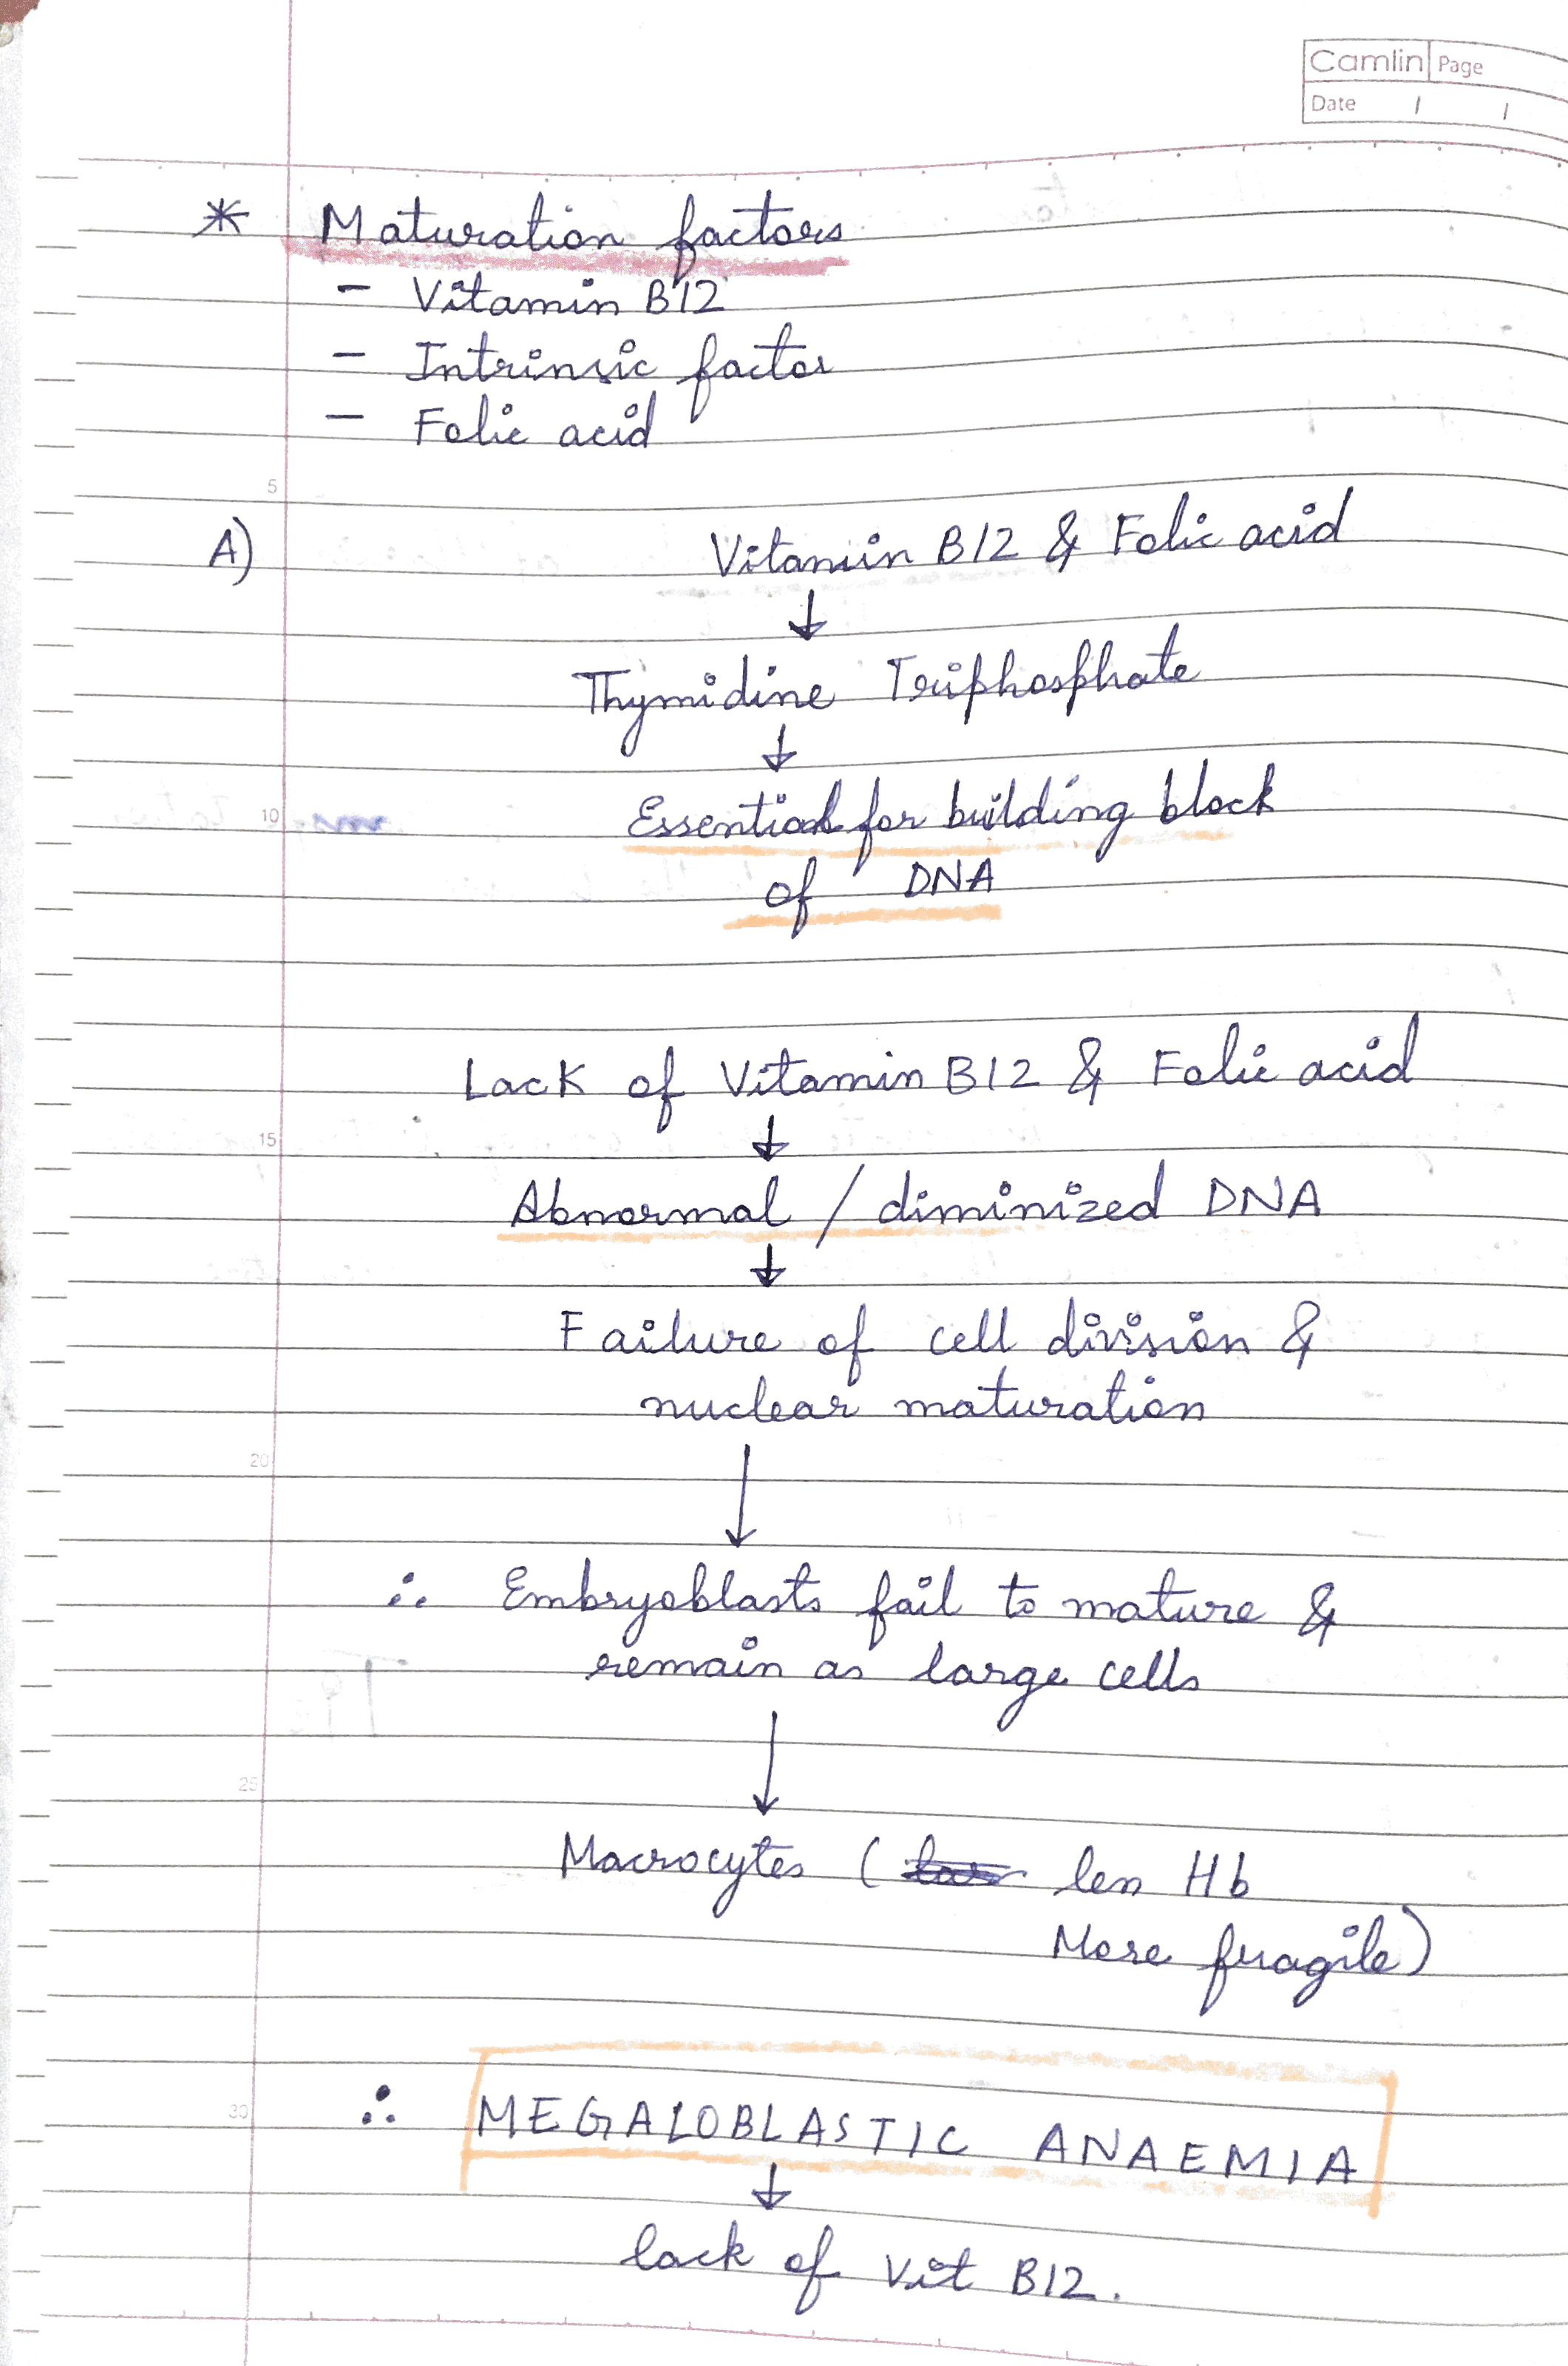 Camlin Page
Date / /
* Maturation factors
- Vitamin B12
- Intrinsic factor
- Folic acid
5
A) Vitamin B12 & Folic acid
↓
Thymidine Triphosphate
↓
10 Essential for building block
of DNA
Lack of Vitamin B12 & Folic acid
15 ↓
Abnormal / diminized DNA
↓
Failure of cell division &
nuclear maturation
20
↓
∴ Embryoblasts fail to mature &
remain as large cells
25 ↓
Macrocytes ( less Hb
More fragile)
30 ∴ MEGALOBLASTIC ANAEMIA
↓
lack of Vit B12.